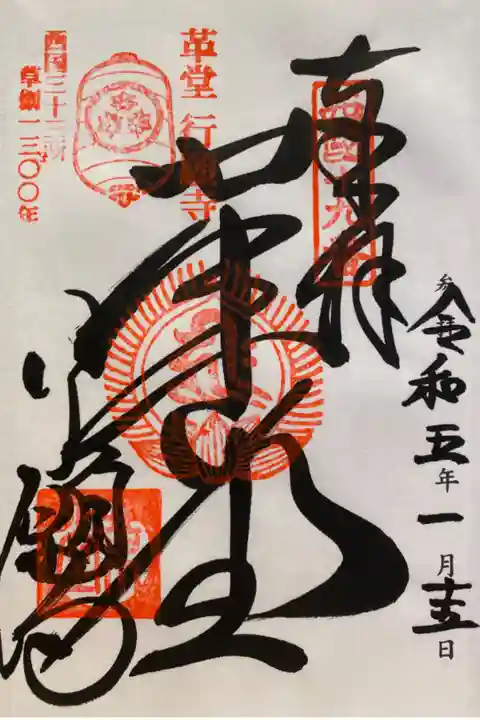 奉拝
西國十九番
革堂 行願寺
西国三十三所
草創一三〇〇年
革堂
行願寺
令和五年一月十五日